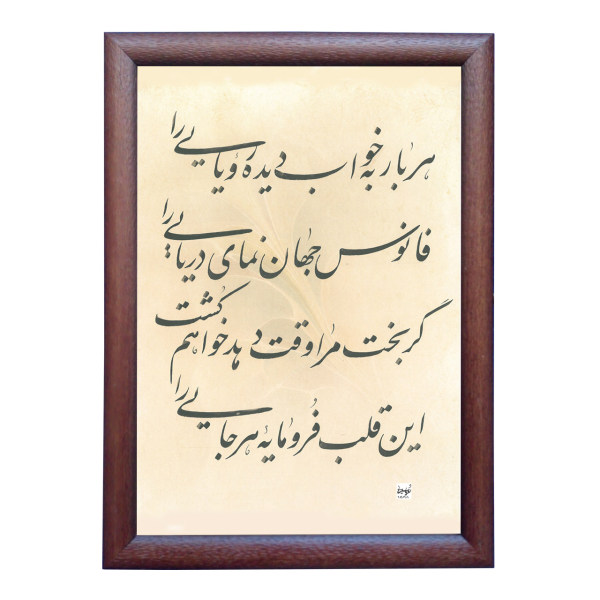 هر بار به خواب دیده رویایی را
فانوس جهان نمای دریایی را
گر بخت مرا وقت دهد خواهم کشت
این قلب فرومایه هر جایی را